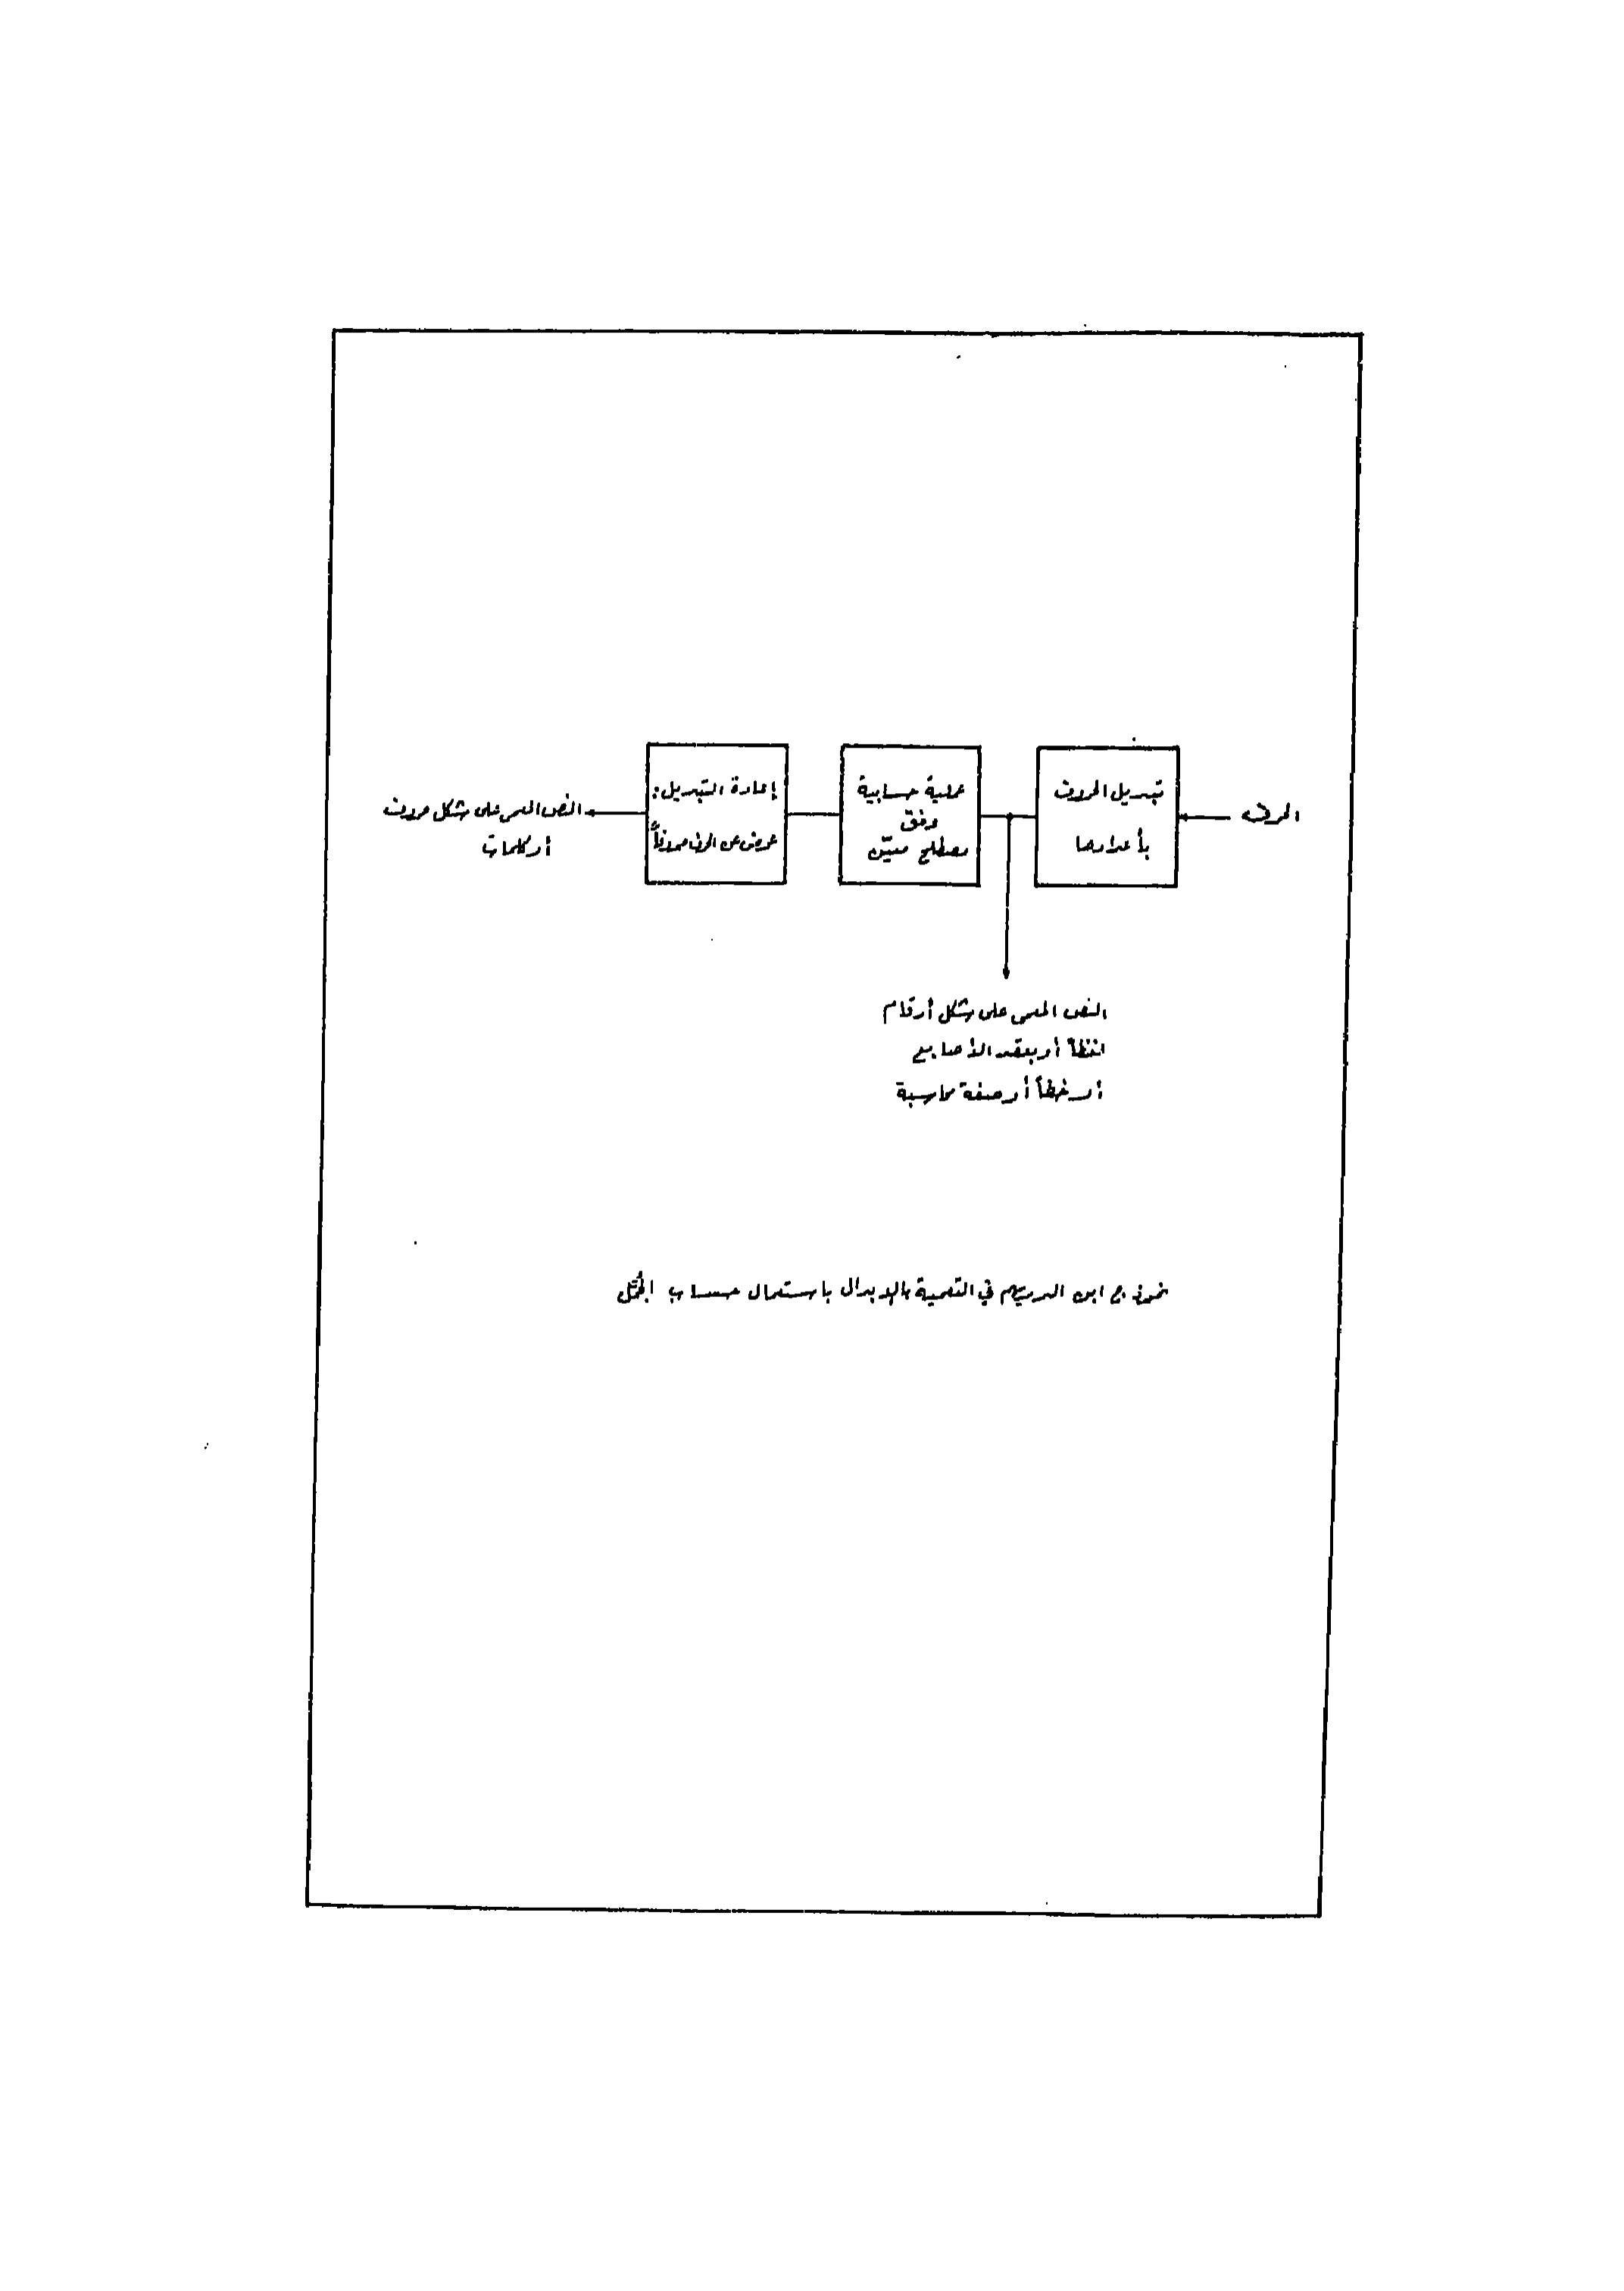 الحرف
تبديل الحروف
بأعدادها
عملية حسابية
وفق
مصطلح معيّن
إعادة التبديل:
عوض عن الحرف حروفاً
النص المعمى على شكل حروف
أو كلمات
النص المعمى على شكل أرقام
لفظاً أو بعقد الأصابع
أو خطاً أو صفة محاسبة
نموذج ابن الدريهم في التعمية بالإبدال باستعمال حساب الجُمّل